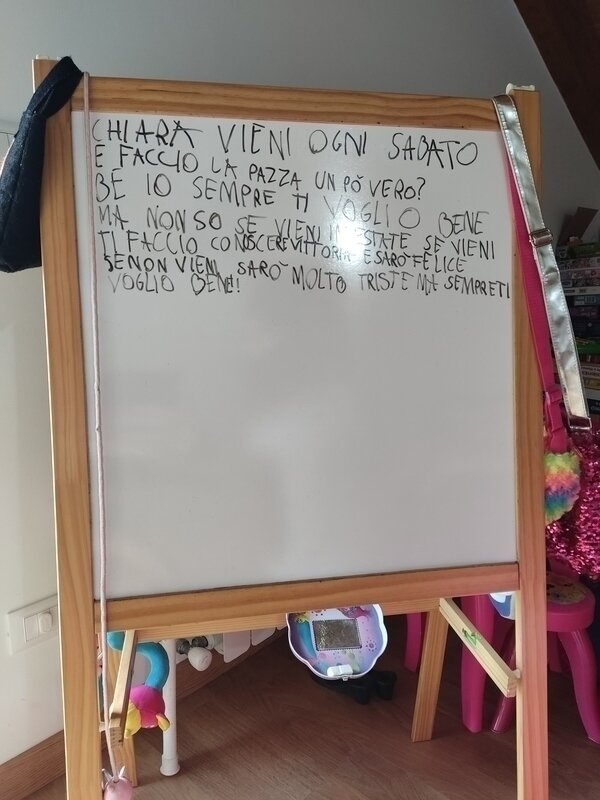 CHIARA VIENI OGNI SABATO
E FACCIO LA PAZZA UN PÒ VERO?
BE IO SEMPRE TI VOGLIO BENE
MA NON SO SE VIENI IN ESTATE SE VIENI
TI FACCIO CONOSCERE VITTORIA E SARÒ FELICE
SE NON VIENI SARÒ MOLTO TRISTE MA SEMPRE TI
VOGLIO BENE!!